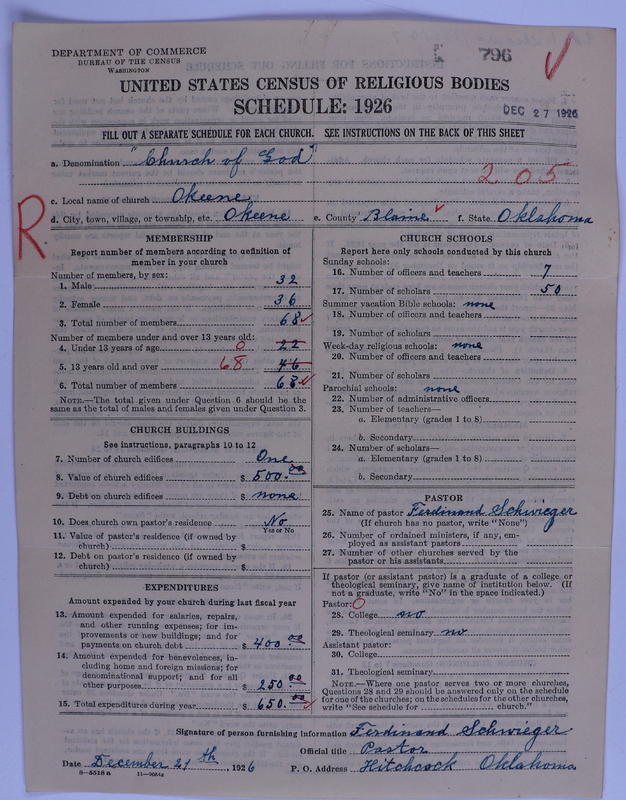 DEPARTMENT OF COMMERCE
BUREAU OF THE CENSUS
WASHINGTON
796
UNITED STATES CENSUS OF RELIGIOUS BODIES
SCHEDULE: 1926
DEC 27 1926
FILL OUT A SEPARATE SCHEDULE FOR EACH CHURCH. SEE INSTRUCTIONS ON THE BACK OF THIS SHEET
a. Denomination "Church of God"
205
c. Local name of church Okeene
d. City, town, village, or township, etc. Okeene e. County Blaine f. State Oklahoma
R
MEMBERSHIP
Report number of members according to definition of
member in your church
Number of members, by sex:
1. Male 32
2. Female 36
3. Total number of members 68
Number of members under and over 13 years old:
4. Under 13 years of age 0 22
5. 13 years old and over 68 46
6. Total number of members 68
NOTE.—The total given under Question 6 should be
the same as the total of males and females given under Question 3.
CHURCH BUILDINGS
See instructions, paragraphs 10 to 12
7. Number of church edifices One
8. Value of church edifices $ 500.00
9. Debt on church edifices $ none
10. Does church own pastor's residence No
Yes or No
11. Value of pastor's residence (if owned by
church) $
12. Debt on pastor's residence (if owned by
church) $
EXPENDITURES
Amount expended by your church during last fiscal year
13. Amount expended for salaries, repairs,
and other running expenses; for im-
provements or new buildings; and for
payments on church debt $ 400.00
14. Amount expended for benevolences, in-
cluding home and foreign missions; for
denominational support; and for all
other purposes $ 250.00
15. Total expenditures during year $ 650.00
CHURCH SCHOOLS
Report here only schools conducted by this church
Sunday schools:
16. Number of officers and teachers 7
17. Number of scholars 50
Summer vacation Bible schools: none
18. Number of officers and teachers
19. Number of scholars
Week-day religious schools: none
20. Number of officers and teachers
21. Number of scholars
Parochial schools: none
22. Number of administrative officers
23. Number of teachers—
a. Elementary (grades 1 to 8)
b. Secondary
24. Number of scholars—
a. Elementary (grades 1 to 8)
b. Secondary
PASTOR
25. Name of pastor Ferdinand Schwieger
(If church has no pastor, write "None")
26. Number of ordained ministers, if any, em-
ployed as assistant pastors
27. Number of other churches served by the
pastor or his assistants
If pastor (or assistant pastor) is a graduate of a college or
theological seminary, give name of institution below. (If
not a graduate, write "No" in the space indicated.)
Pastor: 0
28. College no
29. Theological seminary no
Assistant pastor:
30. College
31. Theological seminary
NOTE.—Where one pastor serves two or more churches,
Questions 28 and 29 should be answered only on the schedule
for one of the churches; on the schedules for the other churches,
write "See schedule for church."
Signature of person furnishing information Ferdinand Schwieger
Official title Pastor
Date December 21th, 1926 P. O. Address Hitchcock Oklahoma
8—5518 a